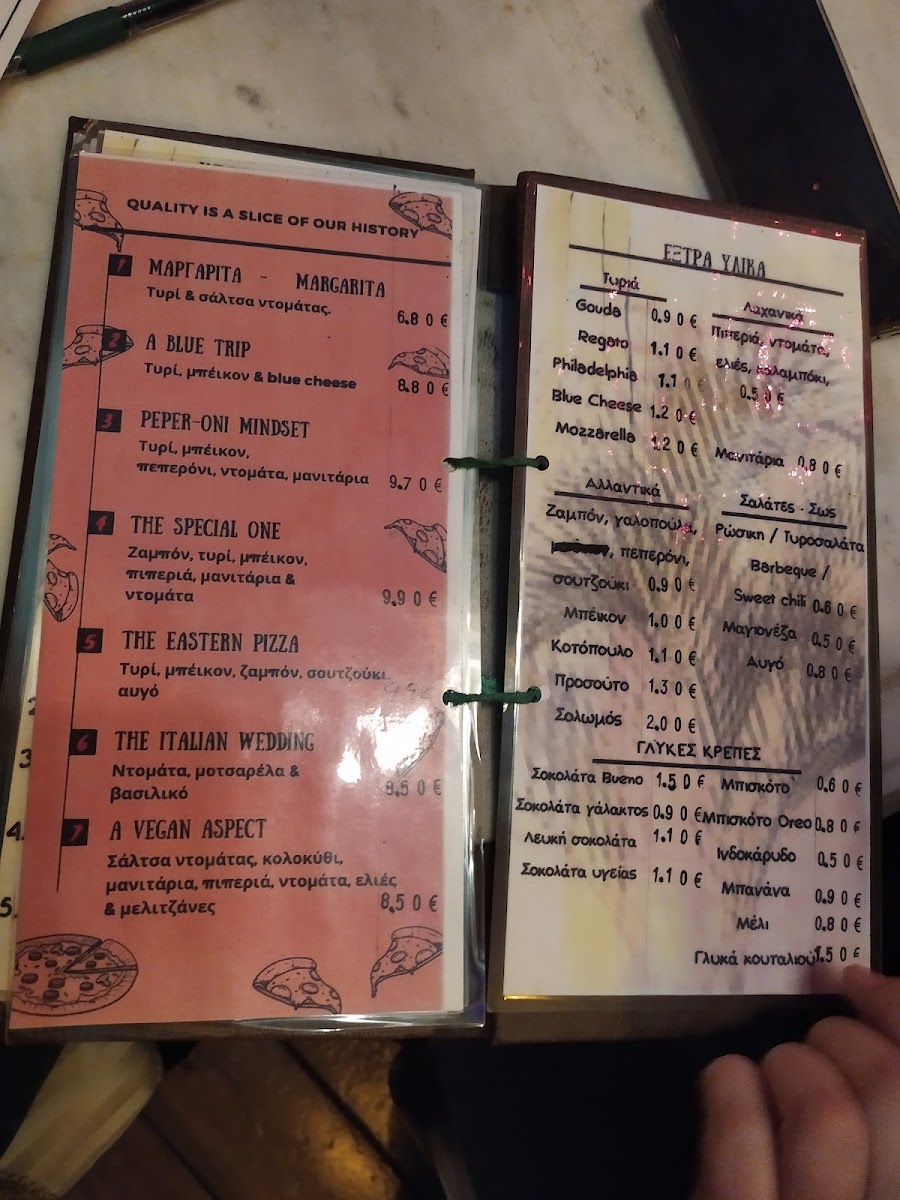 QUALITY IS A SLICE OF OUR HISTORY
1 ΜΑΡΓΑΡΙΤΑ - MARGARITA
Τυρί & σάλτσα ντομάτας.
6.80€
2 A BLUE TRIP
Τυρί, μπέικον & blue cheese 8.80€
3 PEPER-ONI MINDSET
Τυρί, μπέικον,
πεπερόνι, ντομάτα, μανιτάρια 9.70€
4 THE SPECIAL ONE
Ζαμπόν, τυρί, μπέικον,
πιπεριά, μανιτάρια &
ντομάτα 9.90€
5 THE EASTERN PIZZA
Τυρί, μπέικον, ζαμπόν, σουτζούκι,
αυγό
6 THE ITALIAN WEDDING
Ντομάτα, μοτσαρέλα &
βασιλικό 9,50€
7 A VEGAN ASPECT
Σάλτσα ντομάτας, κολοκύθι,
μανιτάρια, πιπεριά, ντομάτα, ελιές
& μελιτζάνες 8,50€
3
4.
5.
ΕΞΤΡΑ ΥΛΙΚΑ
Τυριά
Gouda 0.90€
Regato 1.10€
Philadelphia 1.10€
Blue Cheese 1.20€
Mozzarella 1.20€
Λαχανικά
Πιπεριά, ντομάτα,
ελιές, καλαμπόκι,
0.50€
Μανιτάρια 0.80€
Αλλαντικά
Ζαμπόν, γαλοπούλα,
, πεπερόνι,
σουτζούκι 0.90€
Μπέικον 1.00€
Κοτόπουλο 1.10€
Προσούτο 1.30€
Σολωμός 2.00€
Σαλάτες - Σως
Ρώσικη / Τυροσαλάτα
Barbeque /
Sweet chili 0.60€
Μαγιονέζα 0.50€
Αυγό 0.80€
ΓΛΥΚΕΣ ΚΡΕΠΕΣ
Σοκολάτα Bueno 1.50€
Σοκολάτα γάλακτος 0.90€
Λευκή σοκολάτα 1.10€
Σοκολάτα υγείας 1.10€
Μπισκότο 0.60€
Μπισκότο Oreo 0.80€
Ινδοκάρυδο 0.50€
Μπανάνα 0.90€
Μέλι 0.80€
Γλυκά κουταλιού 1.50€